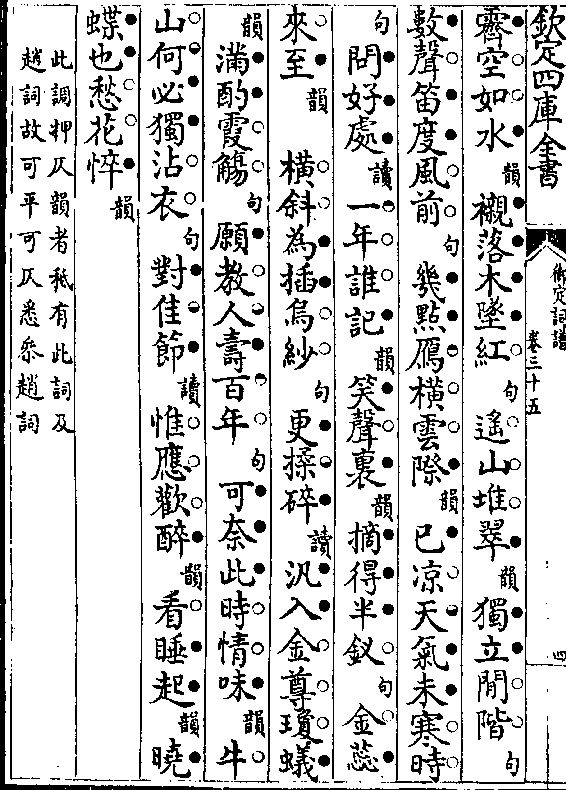 欽定四庫全書
御定詞譜
卷三十五
四
霽空如水韻襯落木墜紅句遙山堆翠韻獨立閒階句
數聲笛度風前句幾點鴈橫雲際韻已凉天氣未寒時
句問好處讀一年誰記韻笑聲裏韻摘得半釵句金蕊
來至韻橫斜為插烏紗句更揉碎讀汎入金尊瓊蟻
韻滿酌霞觴句願教人壽百年句可奈此時情味韻牛
山何必獨沾衣句對佳節讀惟應歡醉韻看睡起韻曉
蝶也愁花悴韻
此調押仄韻者秪有此詞及
趙詞故可平可仄悉叅趙詞